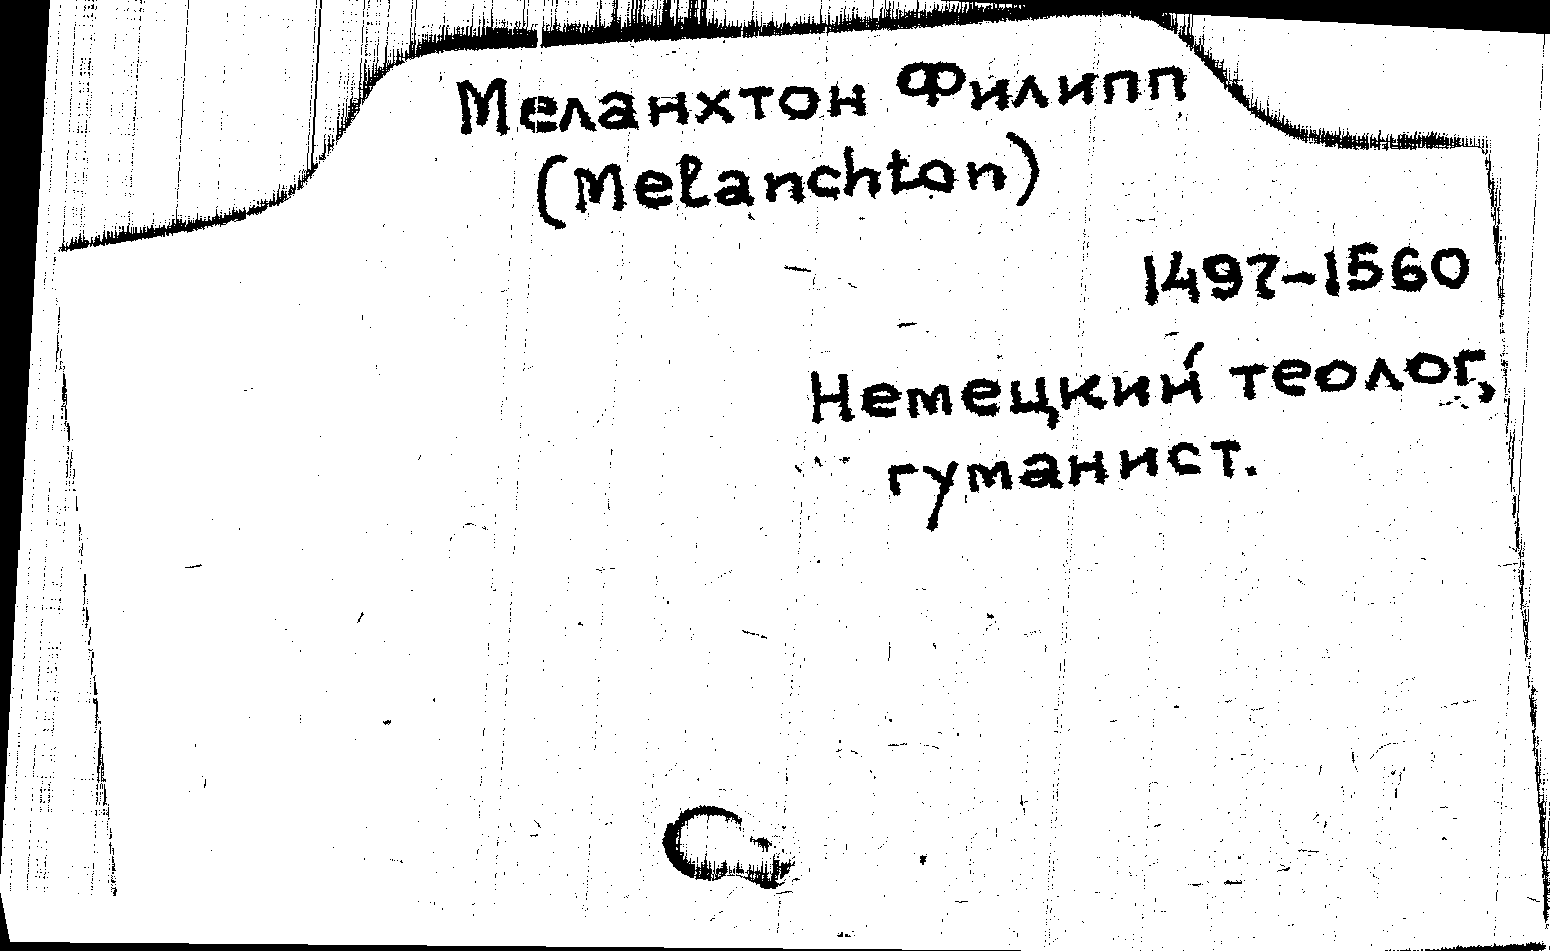 Меланхтон Филипп
(Melanchton)
1497-1560
Немецкий теолог,
гуманист.